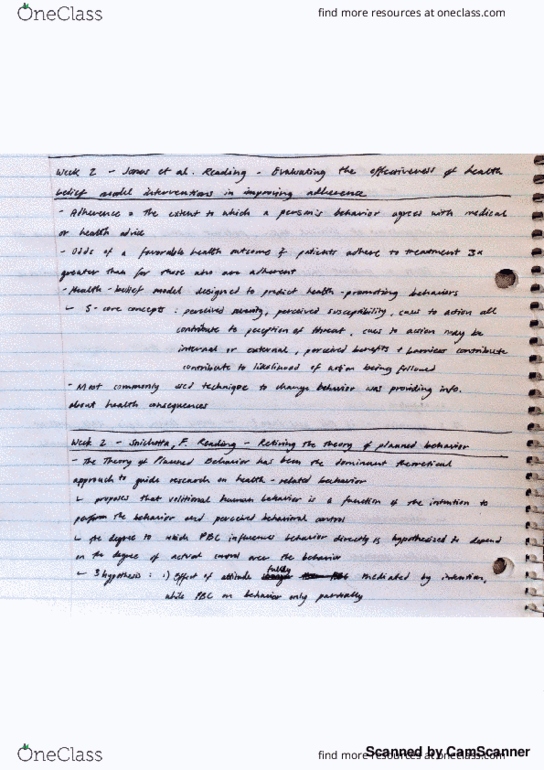 OneClass
find more resources at oneclass.com
Week 2 - Jones et al. Reading - Evaluating the effectiveness of health
belief model interventions in improving adherence
- Adherence = the extent to which a person's behavior agrees with medical
or health advice
- Odds of a favorable health outcome if patients adhere to treatment 3x
greater than for those who non adherent
- Health-belief model designed to predict health-promoting behaviors
↳ 5-core concepts: perceived severity, perceived susceptibility, cues to action all
contribute to perception of threat, cues to action may be
internal or external, perceived benefits + barriers contribute
contribute to likelihood of action being followed
- Most commonly used technique to change behavior was providing info.
about health consequences
Week 2 - Sniehotta, F. Reading - Retiring the theory of planned behavior
- The Theory of Planned Behavior has been the dominant theoretical
approach to guide research on health-related behavior
↳ proposes that volitional human behavior is a function of the intention to
perform the behavior and perceived behavioral control
↳ the degree to which PBC influences behavior directly is hypothesized to depend
on the degree of actual control over the behavior
↳ 3 hypothesis: 1) Effect of attitude fully mediated by intention,
while PBC on behavior only partially
OneClass
find more resources at oneclass.com
Scanned by CamScanner